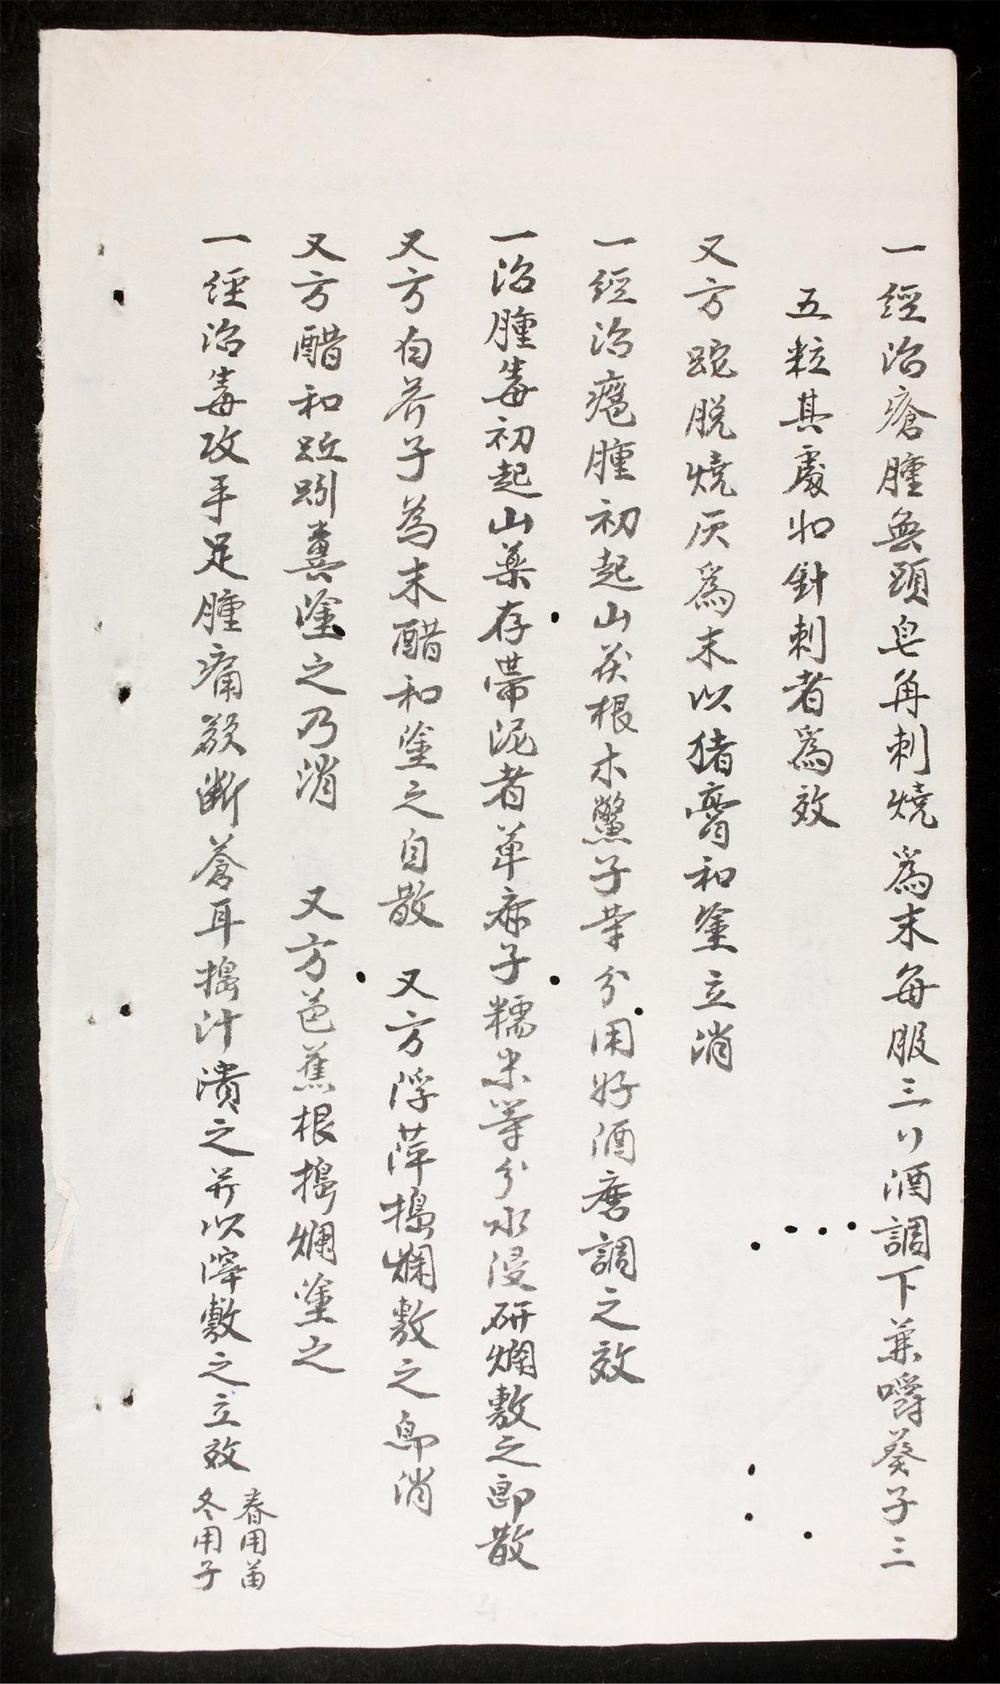 一經治瘡腫無頭皂角刺燒為末每服三刂酒調下兼嚼葵子三
五粒其處如針刺者為效
又方蛇脫燒灰為末以猪膏和塗立消
一經治瘡腫初起山茨根木鱉子等分用好酒磨調之效
一治腫毒初起山藥存帶泥者萆麻子糯米等分水浸研爛敷之即散
又方白芥子為末醋和塗之自散　又方浮萍搗爛敷之即消
又方醋和蚯蚓糞塗之乃消　又方芭蕉根搗爛塗之
一經治毒攻手足腫痛欲斷蒼耳搗汁漬之并以滓敷之立效
春用苗
冬用子